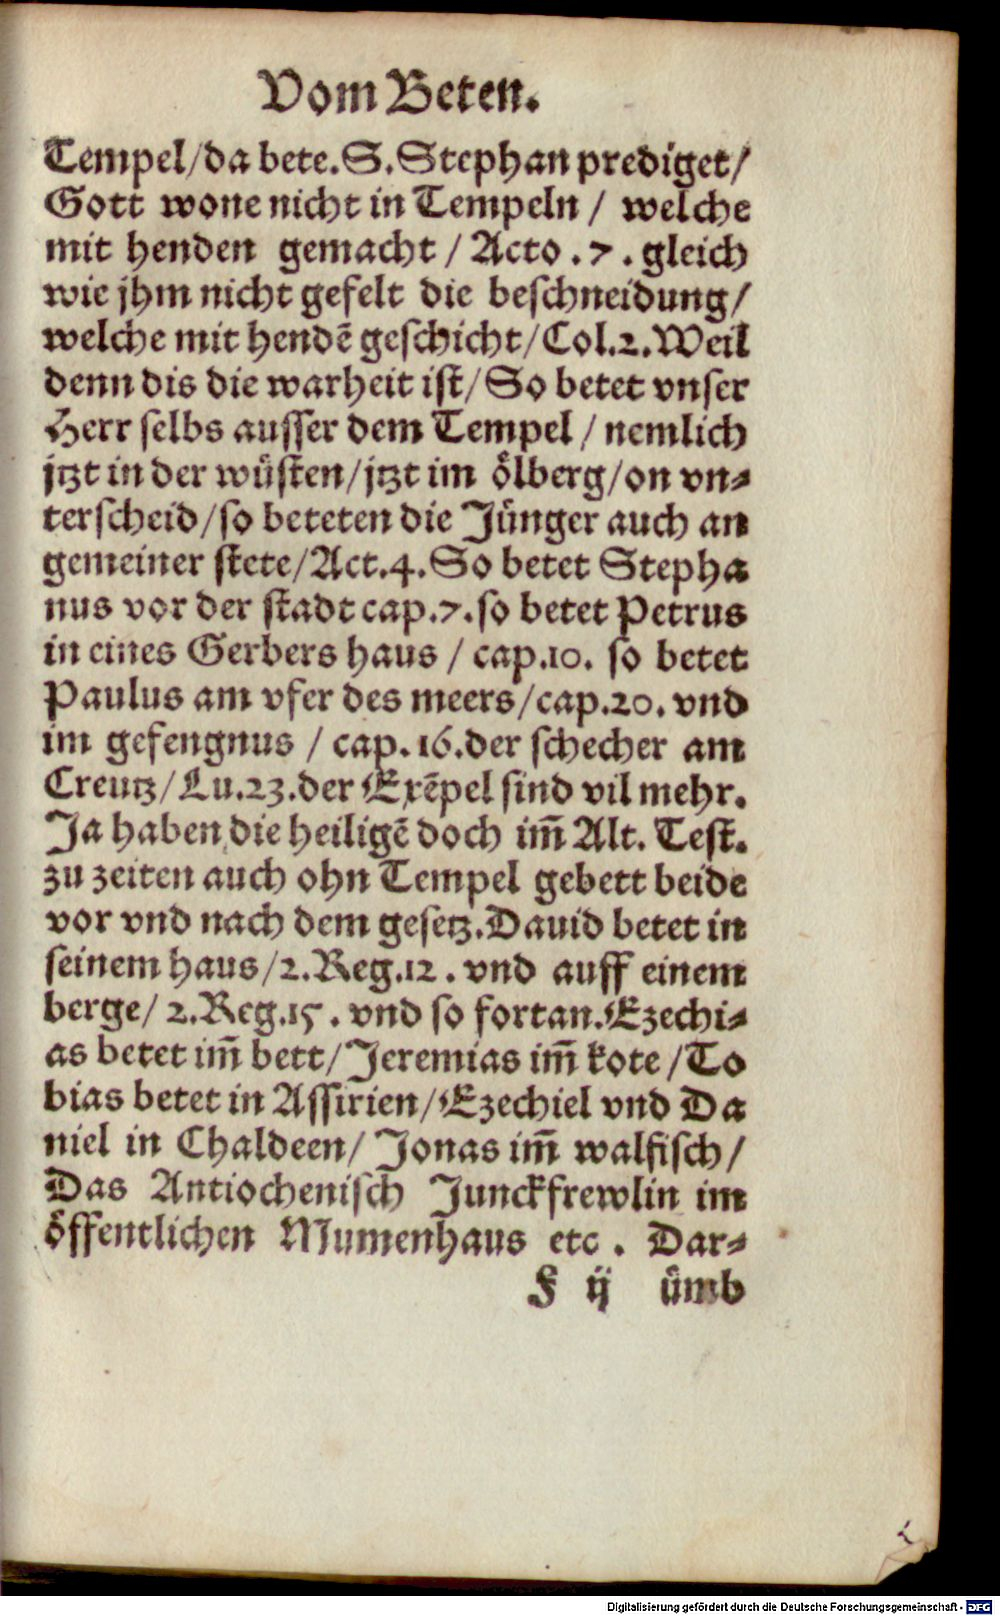 Vom Beten.
Tempel/da bete.S.Stephan prediget/
Gott wone nicht in Tempeln / welche
mit henden gemacht / Acto . 7 . gleich
wie jhm nicht gefelt die beschneidung/
welche mit hendē geschicht/Col.2.Weil
denn dis die warheit ist/So betet vnser
Herr selbs ausser dem Tempel / nemlich
jtzt in der wüsten/jtzt im ölberg/on vn⸗
terscheid/so beteten die Jünger auch an
gemeiner stete/Act.4.So betet Stepha
nus vor der stadt cap.7.so betet Petrus
in eines Gerbers haus / cap.10. so betet
Paulus am vfer des meers/cap.20. vnd
im gefengnus / cap. 16.der schecher am
Creutz/Lu.23.der Exēpel sind vil mehr.
Ja haben die heiligē doch im̄ Alt. Test.
zu zeiten auch ohn Tempel gebett beide
vor vnd nach dem gesetz.Dauid betet in
seinem haus/2.Reg.12 . vnd auff einem
berge/ 2.Reg.15 . vnd so fortan.Ezechi⸗
as betet im̄ bett/Jeremias im̄ kote/To
bias betet in Assirien/Ezechiel vnd Da
niel in Chaldeen/ Jonas im̄ walfisch/
Das Antiochenisch Junckfrewlin im
öffentlichen Mumenhaus etc . Dar⸗
F ij ümb
Digitalisierung gefördert durch die Deutsche Forschungsgemeinschaft - DFG